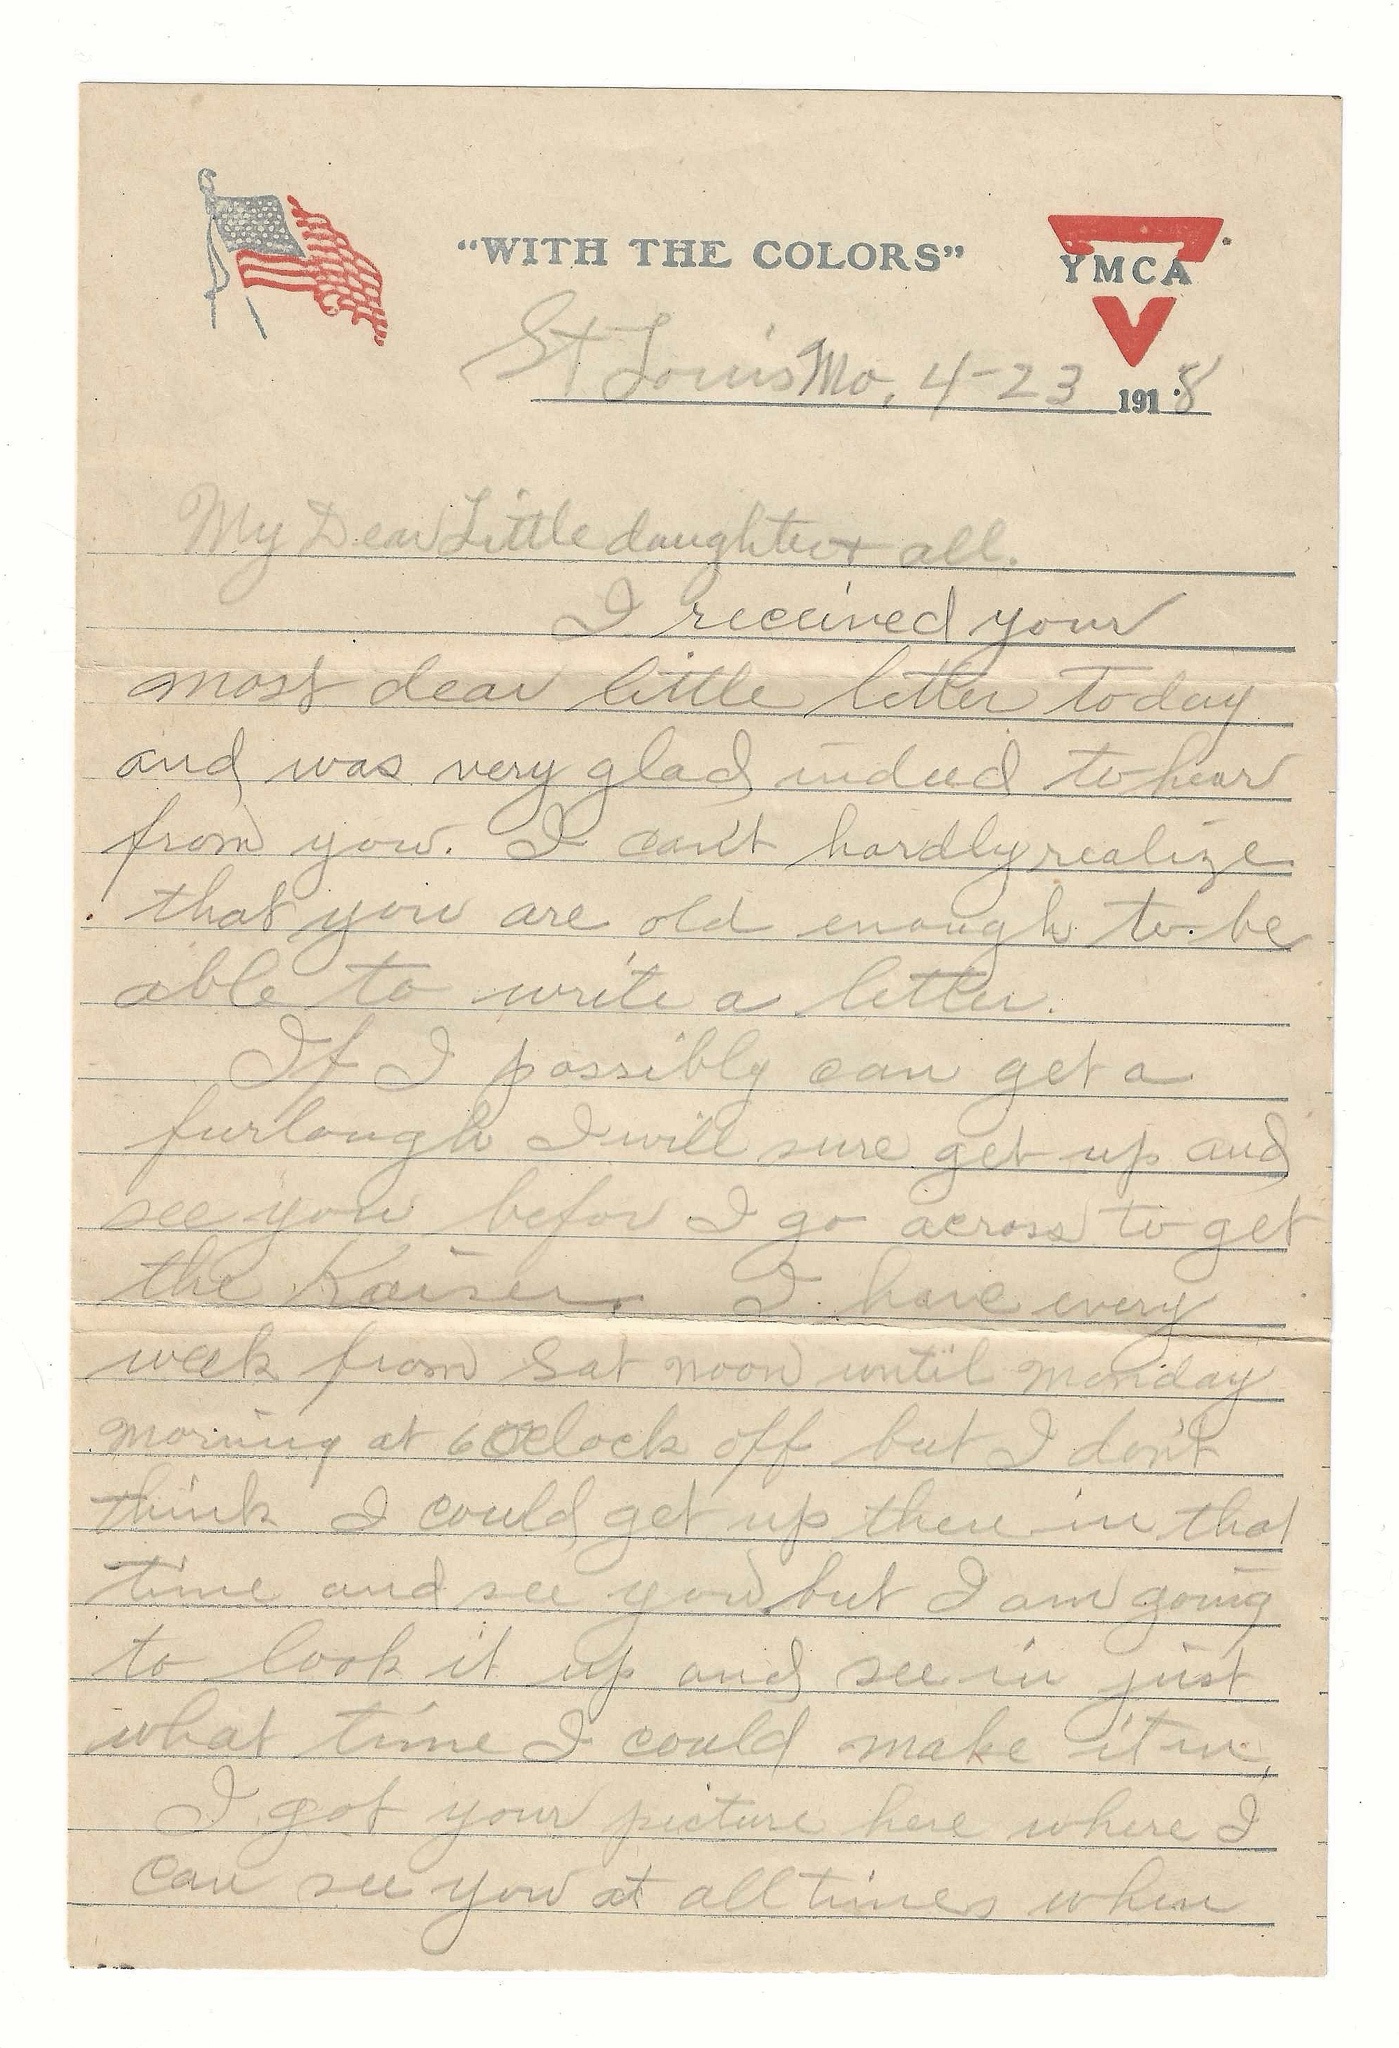 "WITH THE COLORS"
YMCA
St Louis Mo, 4-23 1918
My Dear Little daughter + all.
I received your
most dear little letter today
and was very glad indeed to hear
from you. I can't hardly realize
that you are old enough to be
able to write a letter.
If I possibly can get a
furlough I will sure get up and
see you befor I go across to get
the Kaiser. I have every
week from Sat noon until Monday
morning at 6 Oclock off but I don't
think I could get up there in that
time and see you but I am going
to look it up and see in just
what time I could make it in,
I got your picture here where I
can see you at all times when